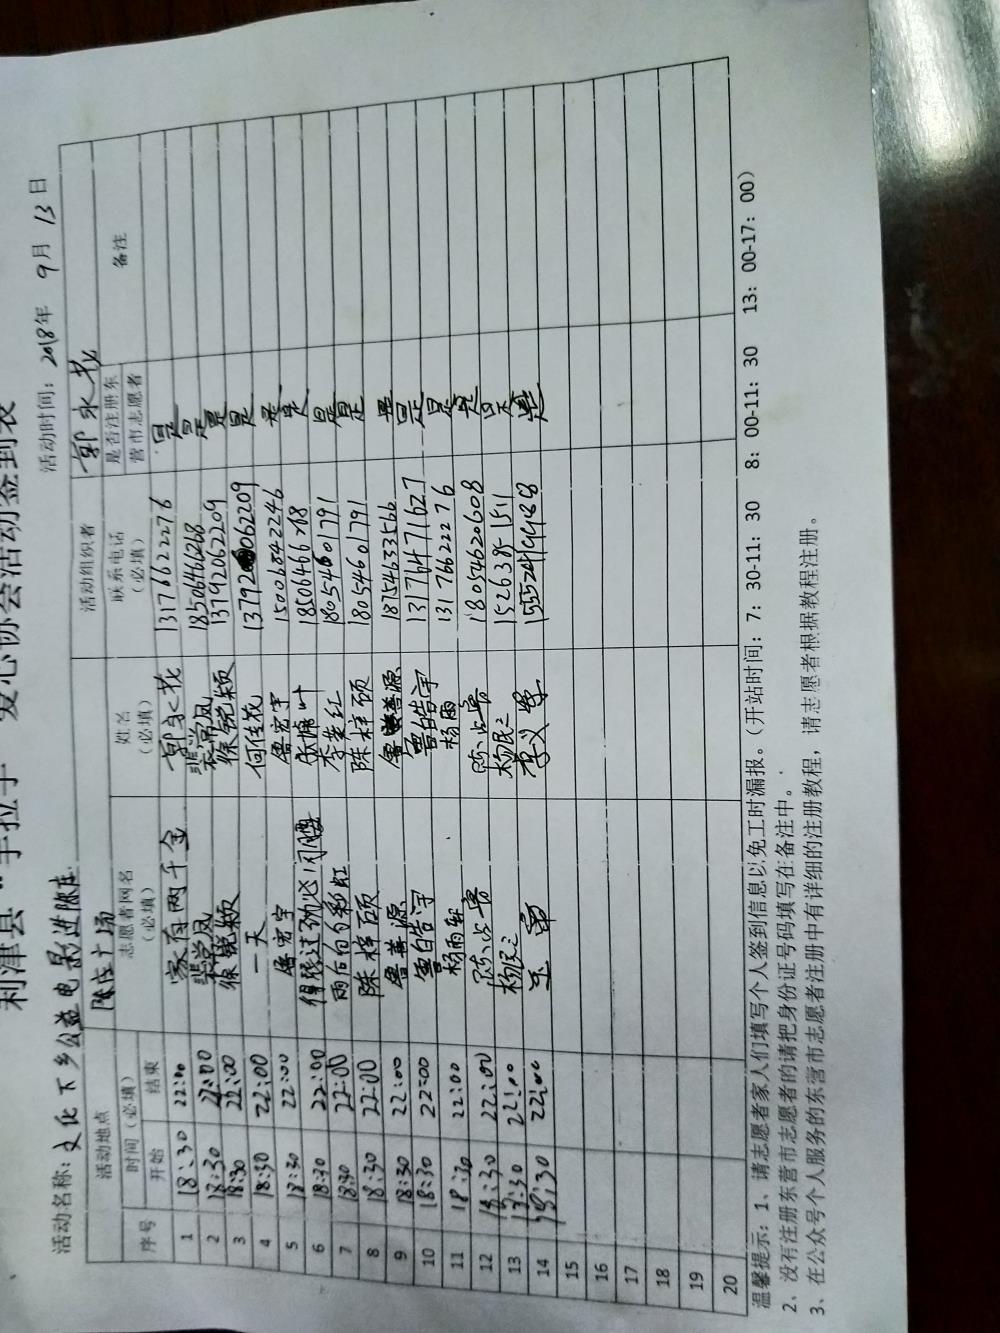 利津县"手拉手"爱心协会活动签到表
活动名称：文化下乡公益电影进陈庄 活动时间：2018年 9月 13日
活动地点 陈庄广场 活动组织者 郭永花
序号 时间（必填） 开始 结束 志愿者网名（必填） 姓名（必填） 联系电话（必填） 是否注册东营市志愿者 备注
1 18:30 22:00 家有两千金 郭永花 13176622276 是
2 18:30 22:00 裴学凤 裴学凤 18506466268 是
3 18:30 22:00 徐锐颖 徐锐颖 13792062209 是
4 18:30 22:00 一天 何佳花 13792062209 是
5 18:30 22:00 唐宏宇 唐宏宇 15006842246 是
6 18:30 22:00 18506466768 是
7 18:30 22:00 雨后的彩虹 李美红 18054601791 是
8 18:30 22:00 陈梓硕 陈梓硕 18054601791 是
9 18:30 22:00 鲁善源 鲁善源 18154633566 是
10 18:30 22:00 13176471627 是
11 18:30 22:00 杨雨 13176622276 是
12 18:30 22:00 18054620608 是
13 18:30 22:00 杨民之 杨民之 是
14 18:30 22:00 是
15
16
17
18
19
20
温馨提示：1、请志愿者家人们填写个人签到信息以免工时漏报。（开站时间：7：30-11：30 8：00-11：30 13：00-17：00）
2、没有注册东营市志愿者的请把身份证号码填写在备注中。
3、在公众号个人服务的东营市志愿者注册中有详细的注册教程，请志愿者根据教程注册。